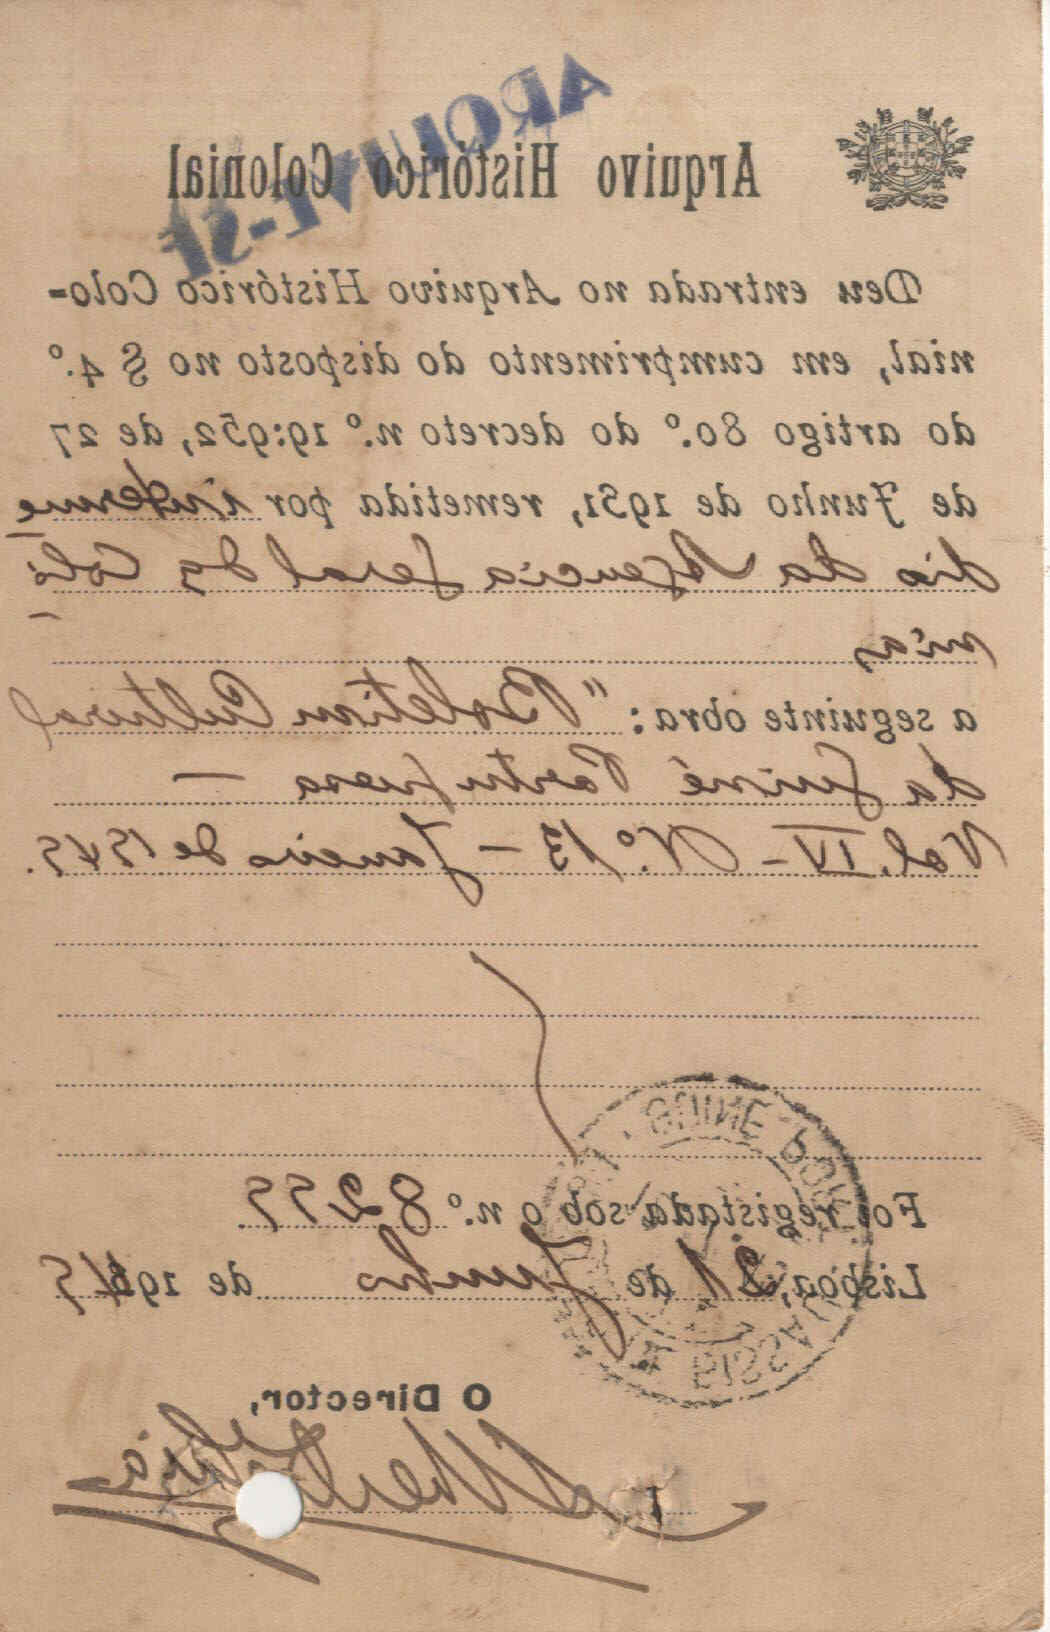 Arquivo Histórico Colonial
ARQUIVE-SE
Deu entrada no Arquivo Histórico Colo-
nial, em cumprimento do disposto no § 4.º
do artigo 80.º do decreto n.º 19:952, de 27
de Junho de 1931, remetida por interme
dio da Agencia Geral das Coló
nias
a seguinte obra: "Boletim Cultural
da Guiné Portuguesa —
Vol. IV – N.º 13 – Janeiro de 1945.
GUINÉ
BISSAU
Foi registada sob o n.º 8255
Lisboa, 21 de Junho de 1945
O Director,